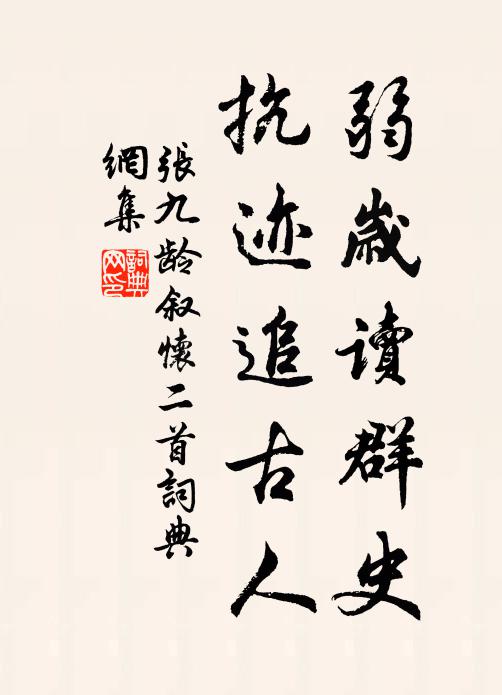 弱歲讀群史
抗迹追古人
張九龄叙懷二首詞典
網集
詞典
网印